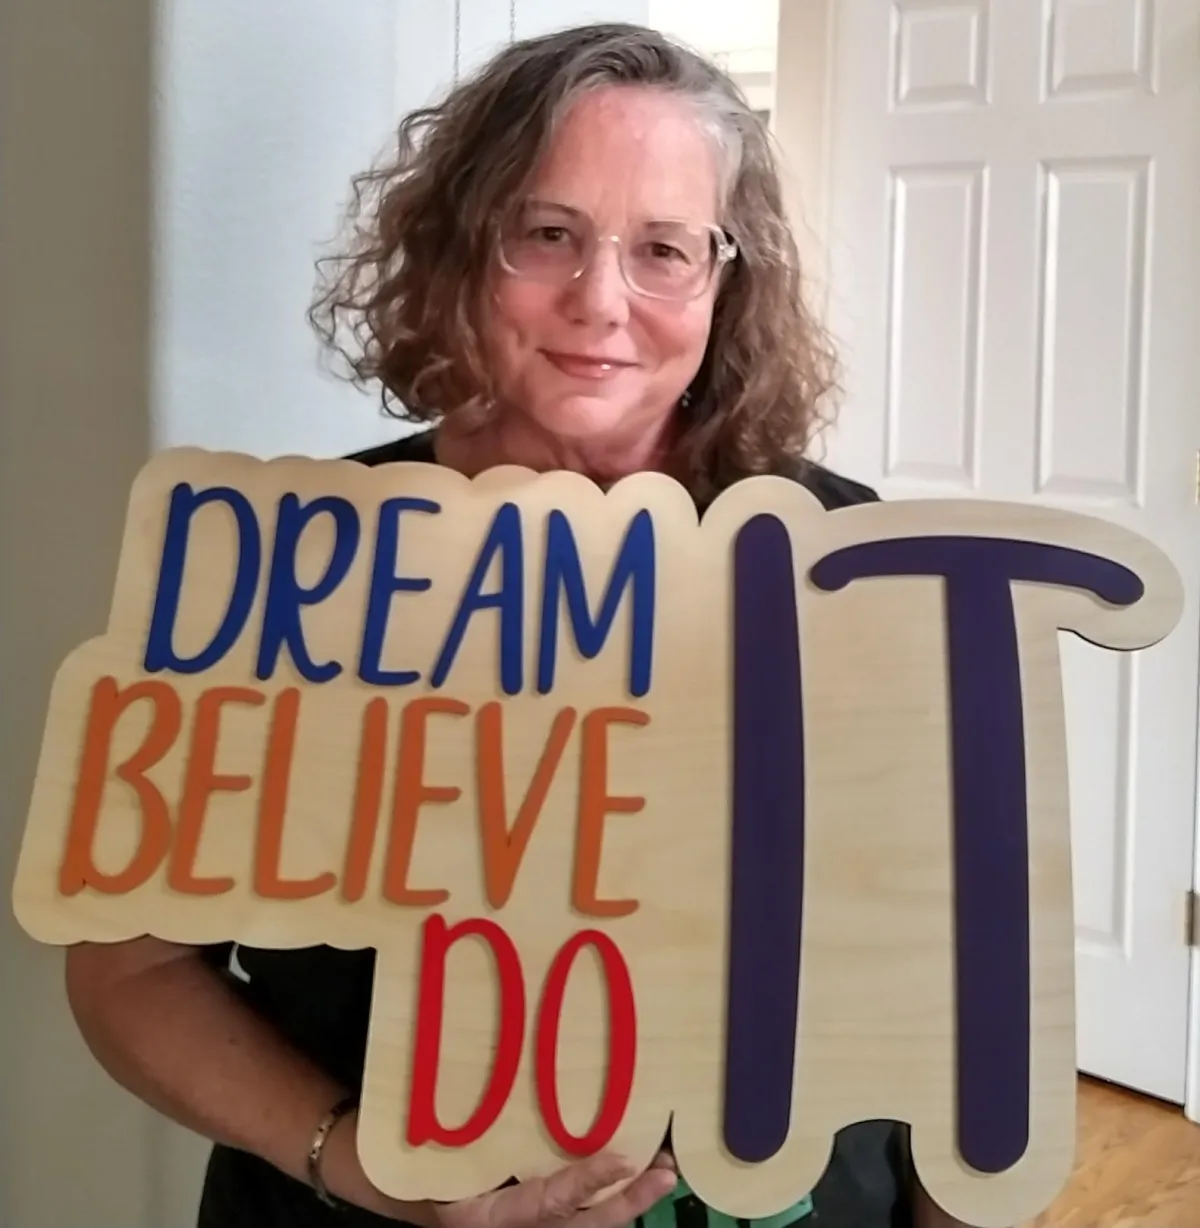 DREAM
BELIEVE
DO
IT